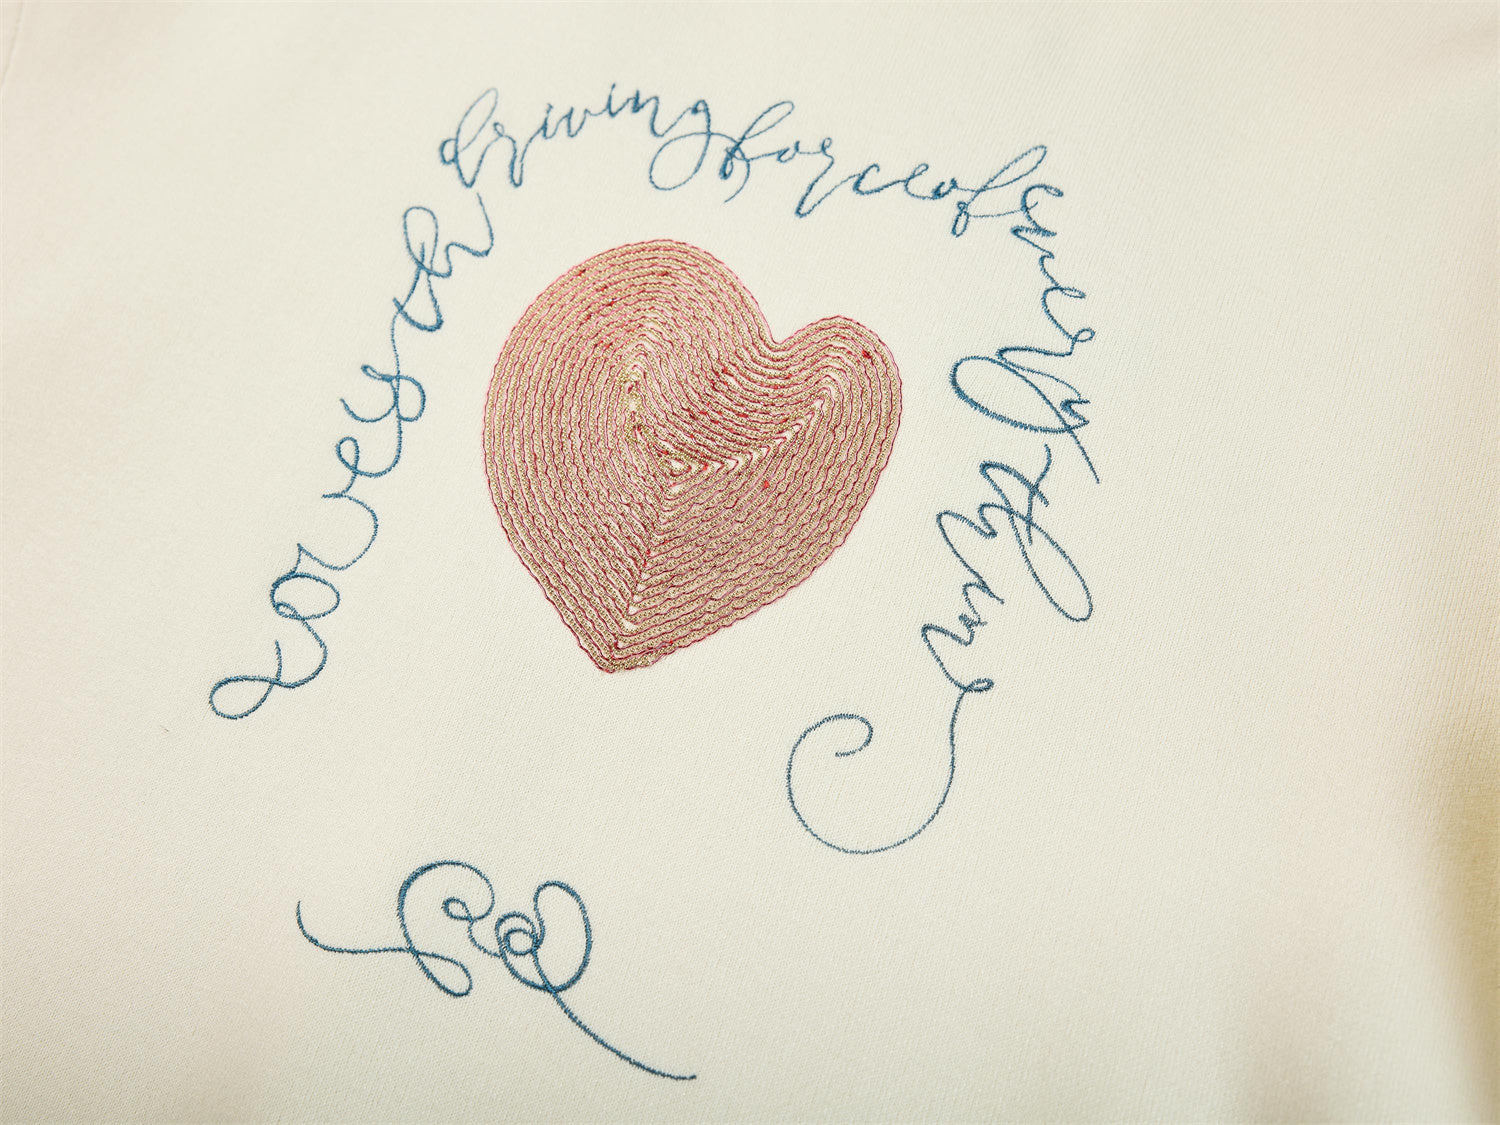 Loves th driving force of every thing